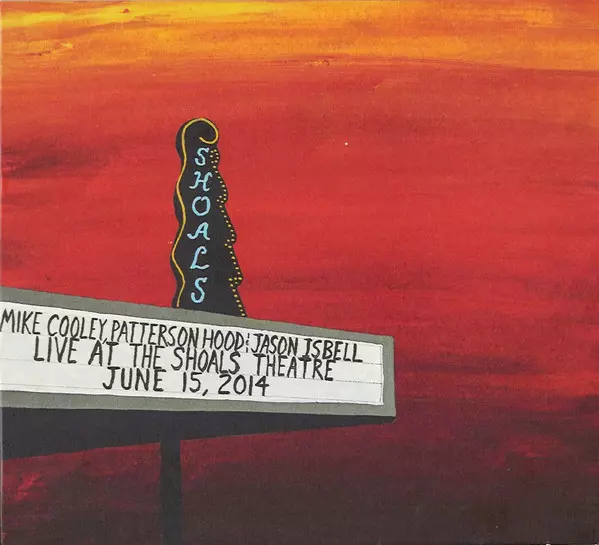 SHOALS
MIKE COOLEY, PATTERSON HOOD & JASON ISBELL
LIVE AT THE SHOALS THEATRE
JUNE 15, 2014